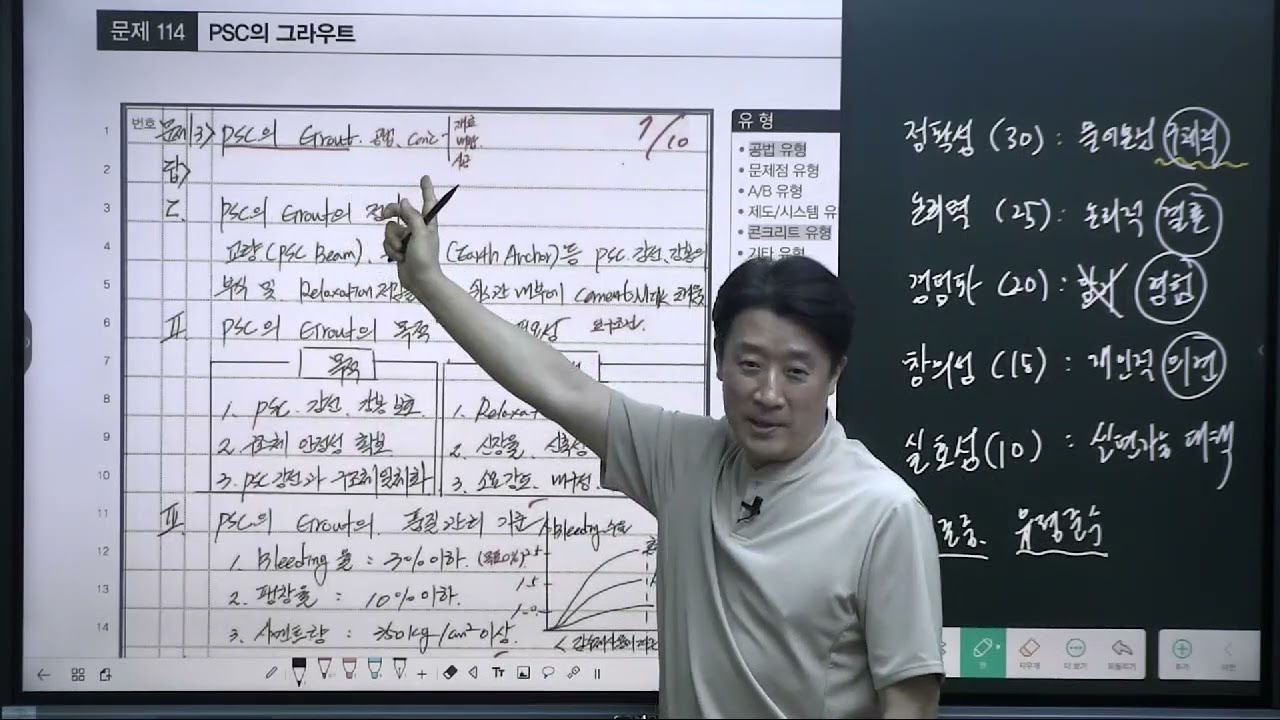 문제 114 PSC의 그라우트
번호
문제13> PSC의 Grout. 공법. Conc 재료
배합
시공
7/10
답>
I. PSC의 Grout의 정
교량(PSC Beam), (Earth Anchor)등 PSC 강선, 강봉의
부식 및 Relaxation 저감을 내부에 Cement Milk
II. PSC의 Grout의 목적 요구조건.
목적
1. PSC. 강선, 강봉 보호.
2. 구조체 안정성 확보
3. PSC 강선과 구조체 일체화
1. Relaxa
2. 신장율,
3. 소요강도, 내구성.
III. PSC의 Grout의 품질관리 기준
1. Bleeding 율 : 3% 이하.
2. 팽창율 : 10% 이하.
3. 시멘트량 : 350kg/cm² 이상.
Bleeding
1.5
1 2 3 4 5 6 7 8 9 10 11 12 13 14
유 형
• 공법 유형
• 문제점 유형
• A/B 유형
• 제도/시스템 유
• 콘크리트 유형
• 기타 유형
정확성 (30) : 물어본것 구체적
논리력 (25) : 논리적 결론
경험파 (20) : 경험
창의성 (15) : 개인적 의견
실효성 (10) : 실현가능 대책
유형준수
Tт
펜
지우개
더 보기
되돌리기
추가
이전